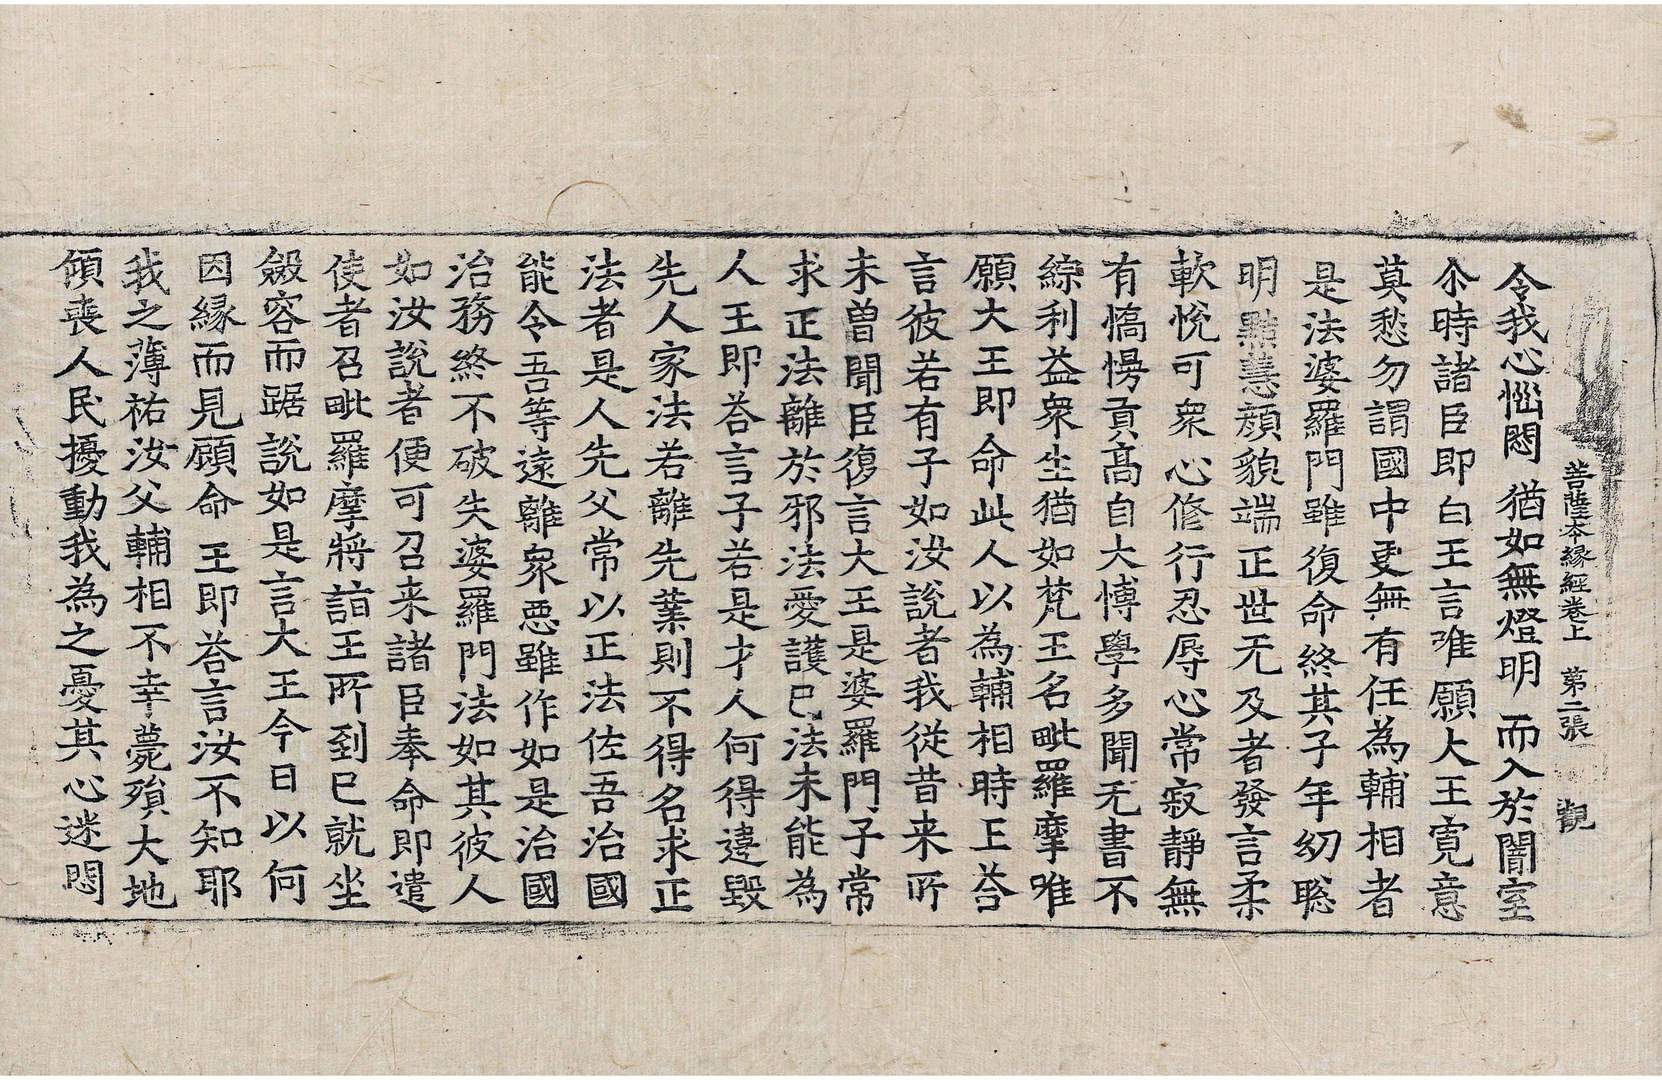 菩薩本緣經卷上 第二張 觀
令我心惱悶猶如無燈明而入於闇室
尒時諸臣即白王言唯願大王寬意
莫愁勿謂國中更無有任為輔相者
是法婆羅門雖復命終其子年幼聡
明黠慧顔貌端正世无及者發言柔
軟悅可衆心修行忍辱心常寂靜無
有憍慢貢髙自大博學多聞无書不
綜利益衆生猶如梵王名毗羅摩唯
願大王即命此人以為輔相時王荅
言彼若有子如汝說者我從昔来所
未曽聞臣復言大王是婆羅門子常
求正法離於邪法愛護巳法未能為
人王即荅言子若是才人何得違毀
先人家法若離先業則不得名求正
法者是人先父常以正法佐吾治國
能令吾等遠離衆惡雖作如是治國
治務終不破失婆羅門法如其彼人
如汝說者便可召来諸臣奉命即遣
使者召毗羅摩將詣王所到巳就坐
斂容而踞說如是言大王今日以何
因緣而見顧命王即荅言汝不知耶
我之薄祐汝父輔相不幸薨殞大地
傾喪人民擾動我為之憂其心迷悶